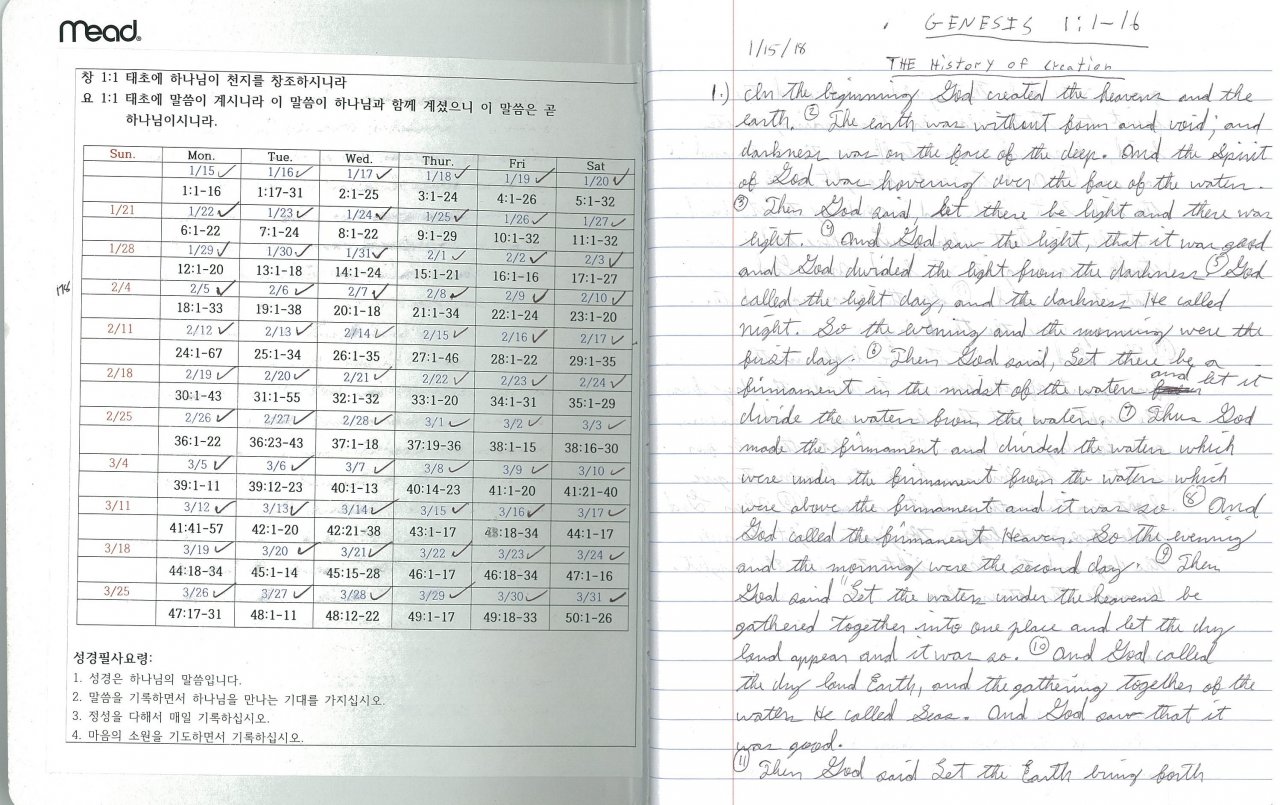 Mead
창 1:1 태초에 하나님이 천지를 창조하시니라
요 1:1 태초에 말씀이 계시니라 이 말씀이 하나님과 함께 계셨으니 이 말씀은 곧
하나님이시니라.
Sun. Mon. Tue. Wed. Thur. Fri Sat
1/15 1/16 1/17 1/18 1/19 1/20
1:1-16 1:17-31 2:1-25 3:1-24 4:1-26 5:1-32
1/21 1/22 1/23 1/24 1/25 1/26 1/27
6:1-22 7:1-24 8:1-22 9:1-29 10:1-32 11:1-32
1/28 1/29 1/30 1/31 2/1 2/2 2/3
12:1-20 13:1-18 14:1-24 15:1-21 16:1-16 17:1-27
2/4 2/5 2/6 2/7 2/8 2/9 2/10
18:1-33 19:1-38 20:1-18 21:1-34 22:1-24 23:1-20
2/11 2/12 2/13 2/14 2/15 2/16 2/17
24:1-67 25:1-34 26:1-35 27:1-46 28:1-22 29:1-35
2/18 2/19 2/20 2/21 2/22 2/23 2/24
30:1-43 31:1-55 32:1-32 33:1-20 34:1-31 35:1-29
2/25 2/26 2/27 2/28 3/1 3/2 3/3
36:1-22 36:23-43 37:1-18 37:19-36 38:1-15 38:16-30
3/4 3/5 3/6 3/7 3/8 3/9 3/10
39:1-11 39:12-23 40:1-13 40:14-23 41:1-20 41:21-40
3/11 3/12 3/13 3/14 3/15 3/16 3/17
41:41-57 42:1-20 42:21-38 43:1-17 43:18-34 44:1-17
3/18 3/19 3/20 3/21 3/22 3/23 3/24
44:18-34 45:1-14 45:15-28 46:1-17 46:18-34 47:1-16
3/25 3/26 3/27 3/28 3/29 3/30 3/31
47:17-31 48:1-11 48:12-22 49:1-17 49:18-33 50:1-26
성경필사요령:
1. 성경은 하나님의 말씀입니다.
2. 말씀을 기록하면서 하나님을 만나는 기대를 가지십시오.
3. 정성을 다해서 매일 기록하십시오.
4. 마음의 소원을 기도하면서 기록하십시오.
GENESIS 1:1-16
1/15/18
THE History of Creation
1.) In the beginning God created the heavens and the
earth. ② The earth was without form and void; and
darkness was on the face of the deep. And the Spirit
of God was hovering over the face of the waters.
③ Then God said, let there be light and there was
light. ④ And God saw the light, that it was good
and God divided the light from the darkness ⑤ God
called the light day, and the darkness He called
night. So the evening and the morning were the
first day. ⑥ Then God said, Let there be a
firmament in the midst of the waters and let it
divide the waters from the waters. ⑦ Thus God
made the firmament and divided the waters which
were under the firmament from the waters which
were above the firmament and it was so. ⑧ And
God called the firmament Heaven. So the evening
and the morning were the second day. ⑨ Then
God said "Let the waters under the heavens be
gathered together into one place and let the dry
land appear and it was so. ⑩ And God called
the dry land Earth, and the gathering together of the
waters He called Seas. And God saw that it
was good.
⑪ Then God said Let the Earth bring forth